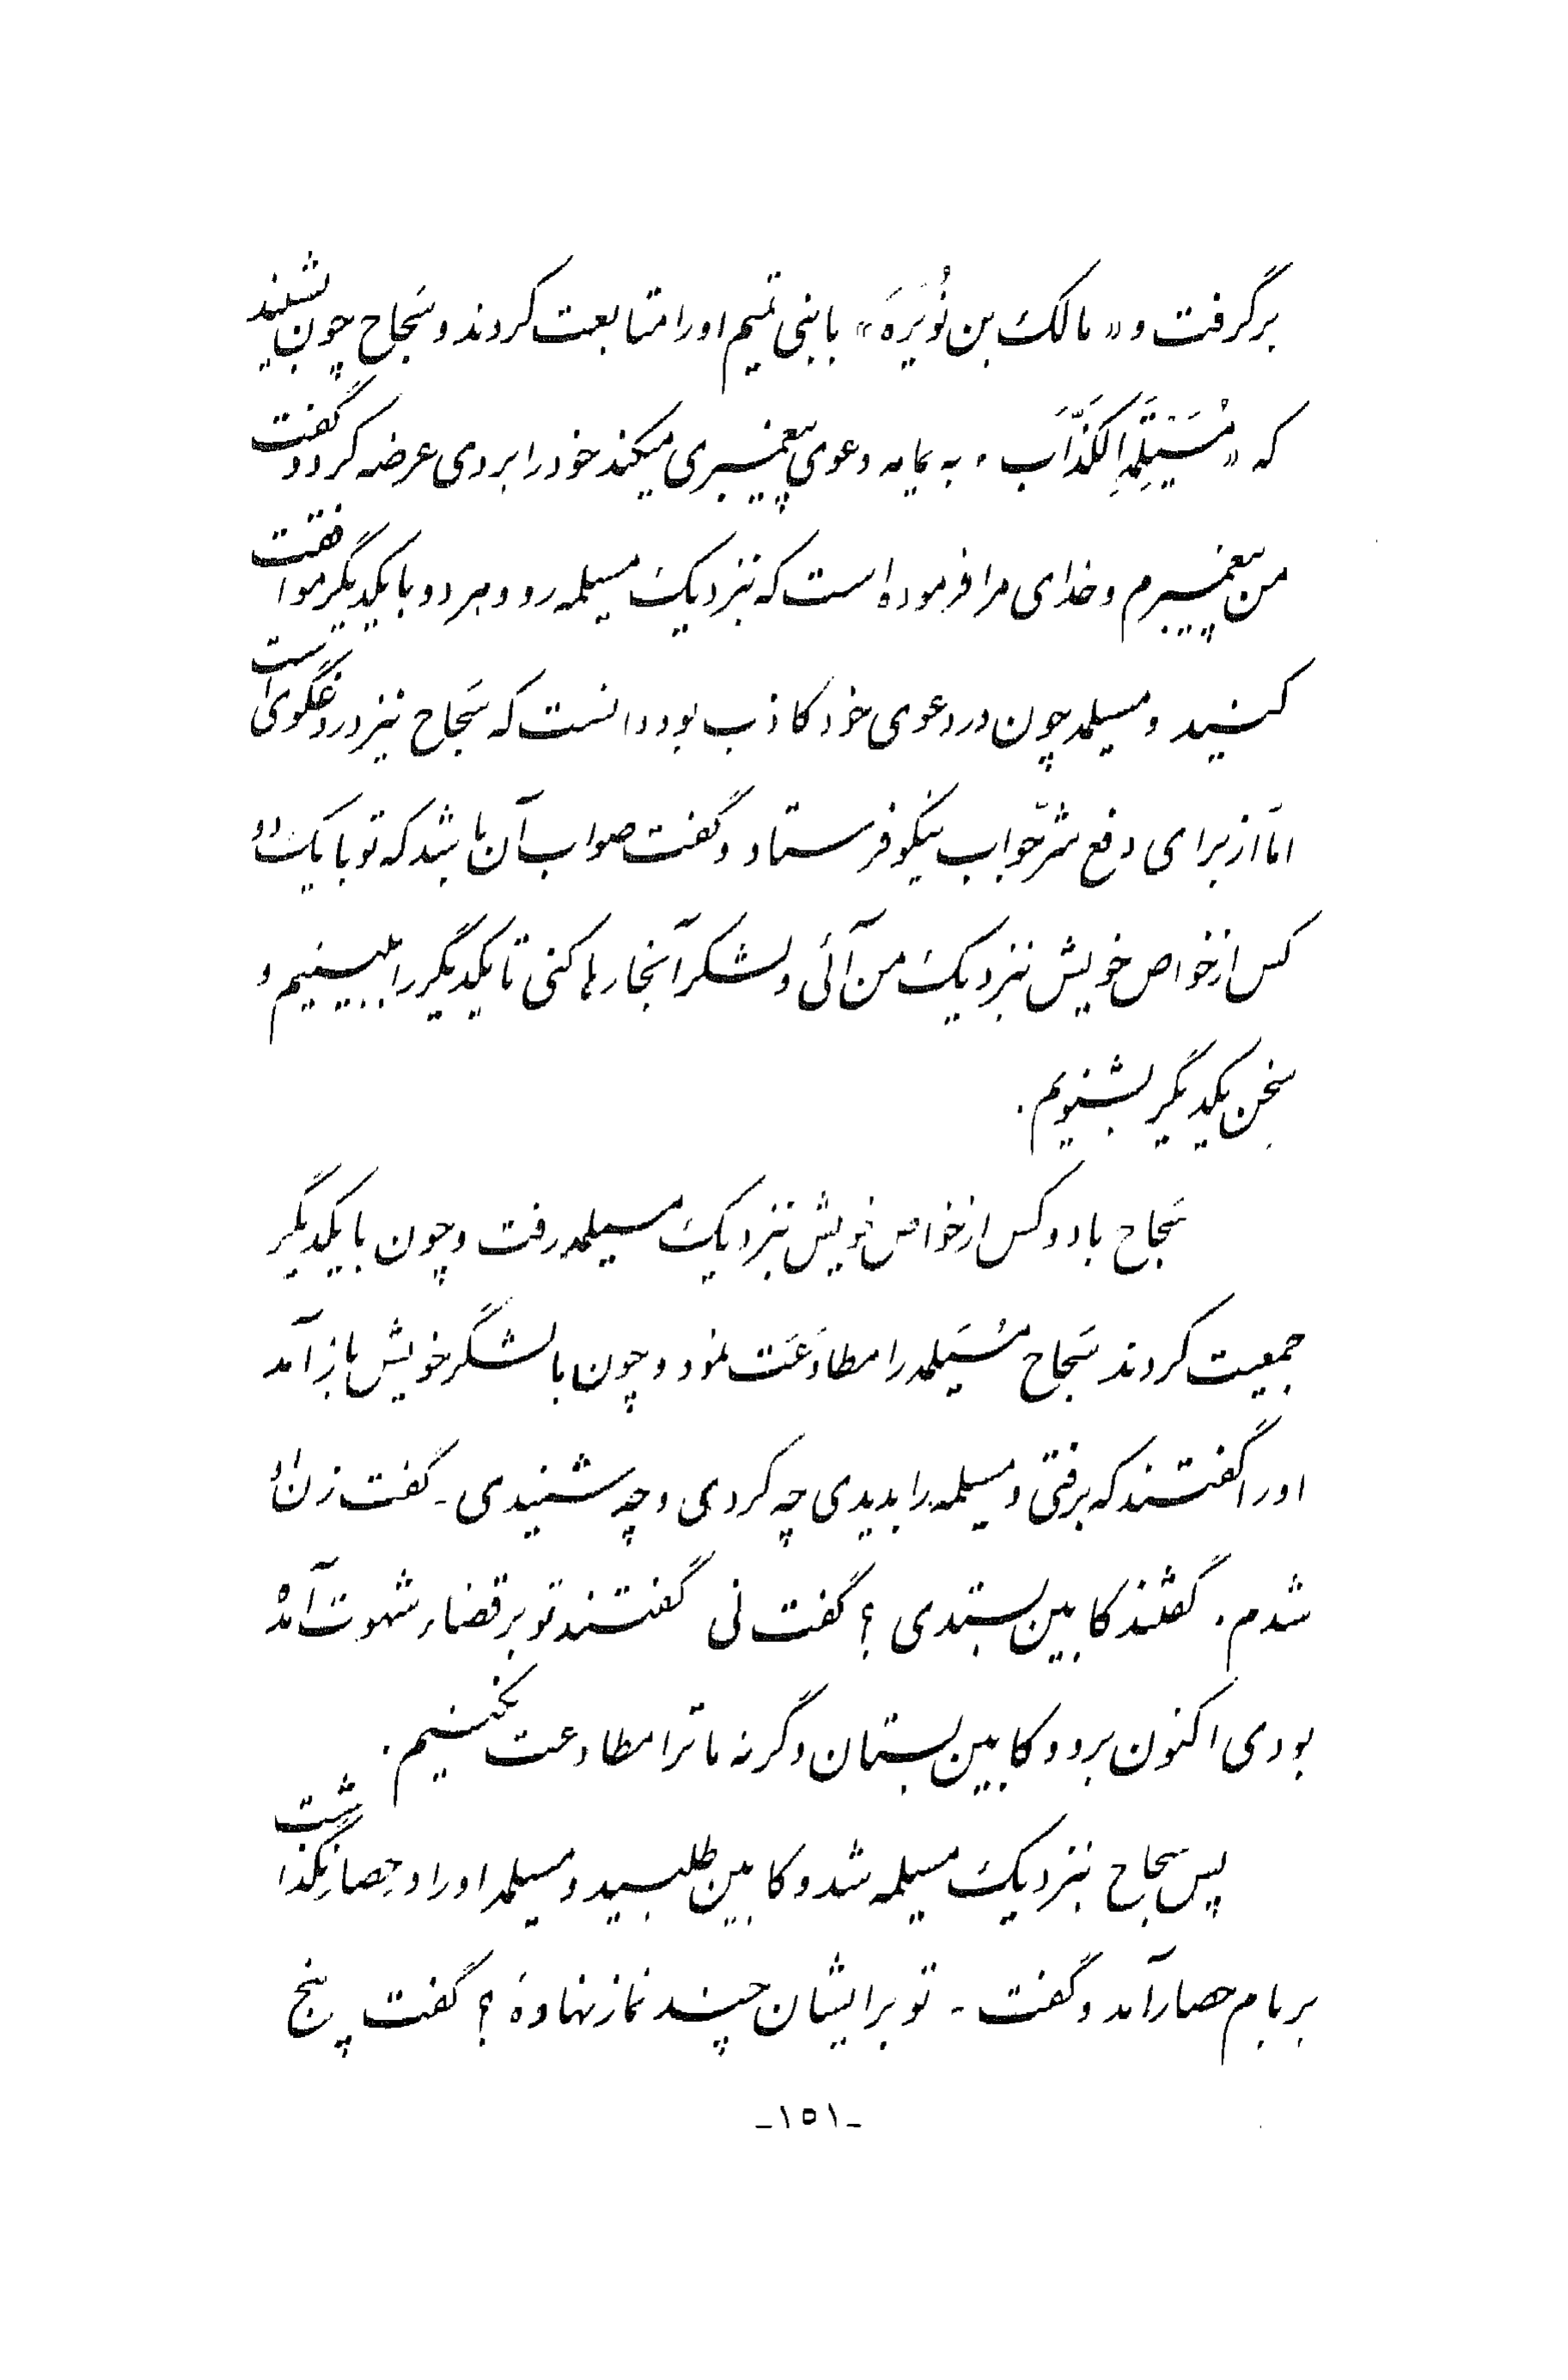 برگرفت و «مالک بن نُوَیرَهَ» بابنی تمیم اورا متابعت کردند و سَجاح چون بشنید
که «مُسَیلَمَهِ الکَذّاَب» به یمامه دعوی پیغمبری میکند خود را بروی عرضه کرد و گفت
من پیغمبرم و خدای مرا فرموده است که بنزدیک مسیلمه رو و هر دو با یکدیگر موافقت
کنید و مسیلمه چون در دعوی خود کاذب بود دانست که سَجاح نیز دروغگوی است
امّا از برای دفع شرّ جواب نیکو فرستاد و گفت صواب آن باشد که تو با یک دو
کس از خواص خویش بنزدیک من آئی و لشکر آنجا رها کنی تا یکدیگر را ببینیم و
سخن یکدیگر بشنویم.
سَجاح با دو کس از خواص خویش بنزدیک مسیلمه رفت و چون با یکدیگر
جمعیت کردند سَجاح مُسَیلمه را مطاوَعَت نمود و چون با لشگر خویش باز آمد
اورا گفتند که برفتی و مسیلمه را بدیدی چه کردی و چه شنیدی ـ گفت زن او
شدم. گفتند کابین بستدی؟ گفت نی گفتند تو بر قضاء شهوت آمده
بودی اکنون برو و کابین بستان و گرنه ما ترا مطاوعت نکنیم.
پس سجاح بنزدیک مسیلمه شد و کابین طلبید و مسیلمه اورا در حِصار نگذاشت
بر بام حصار آمد و گفت ـ تو بر ایشان چند نماز نهادهٔ؟ گفت پنج
ـ١٥١ـ